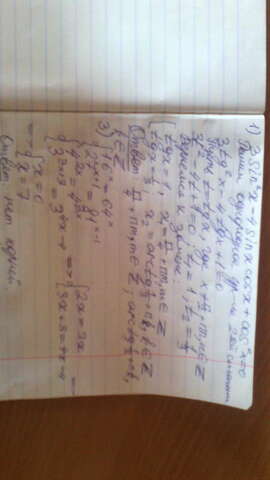 1) 3sin²x-4sinx cosx+cos²x=0
Решим однородное ур-ние 2ой степени
3tg²x-4tgx+1=0
Пусть t=tgx, где x≠π/2+πn, n∈Z
3t²-4t+1=0; t₁=1; t₂=1/3
Вернемся к замене:
[tgx=1, x₁=π/4+πm, m∈Z
tgx=1/3; x₂=arctg1/3+πk, k∈Z
Ответ: π/4+πm, m∈Z; arctg1/3+πk,
k∈Z
3) {16ˣ=64ˣ
=81ˣ⁻¹
{4²ˣ=4³ˣ => {2x=3x =>
3³ˣ⁺³=3⁴ˣ⁻⁴ 3x+3=4x-4
=> {x=0
x=7
Ответ: нет корней